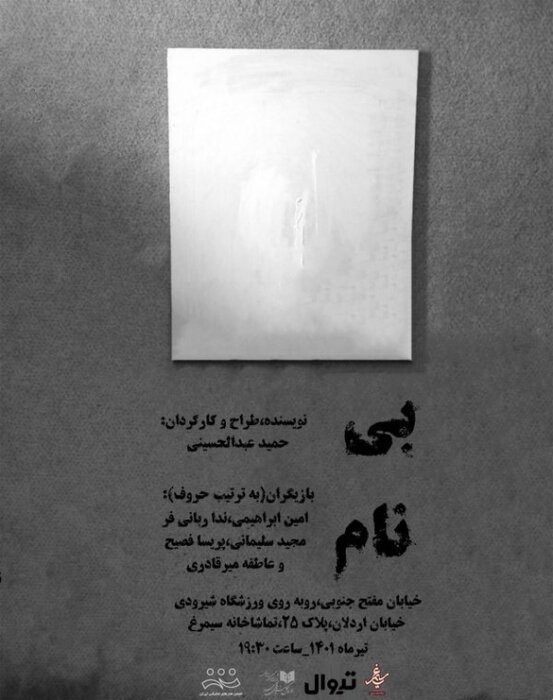 بی
نام
نویسنده،طراح و کارگردان:
حمید عبدالحسینی
بازیگران(به ترتیب حروف):
امین ابراهیمی،ندا ربانی فر
مجید سلیمانی،پریسا فصیح
و عاطفه میرقادری
خیابان مفتح جنوبی،روبه روی ورزشگاه شیرودی
خیابان اردلان،پلاک ۲۵،تماشاخانه سیمرغ
تیرماه ۱۴۰۱_ساعت ۱۹:۳۰
تیوال